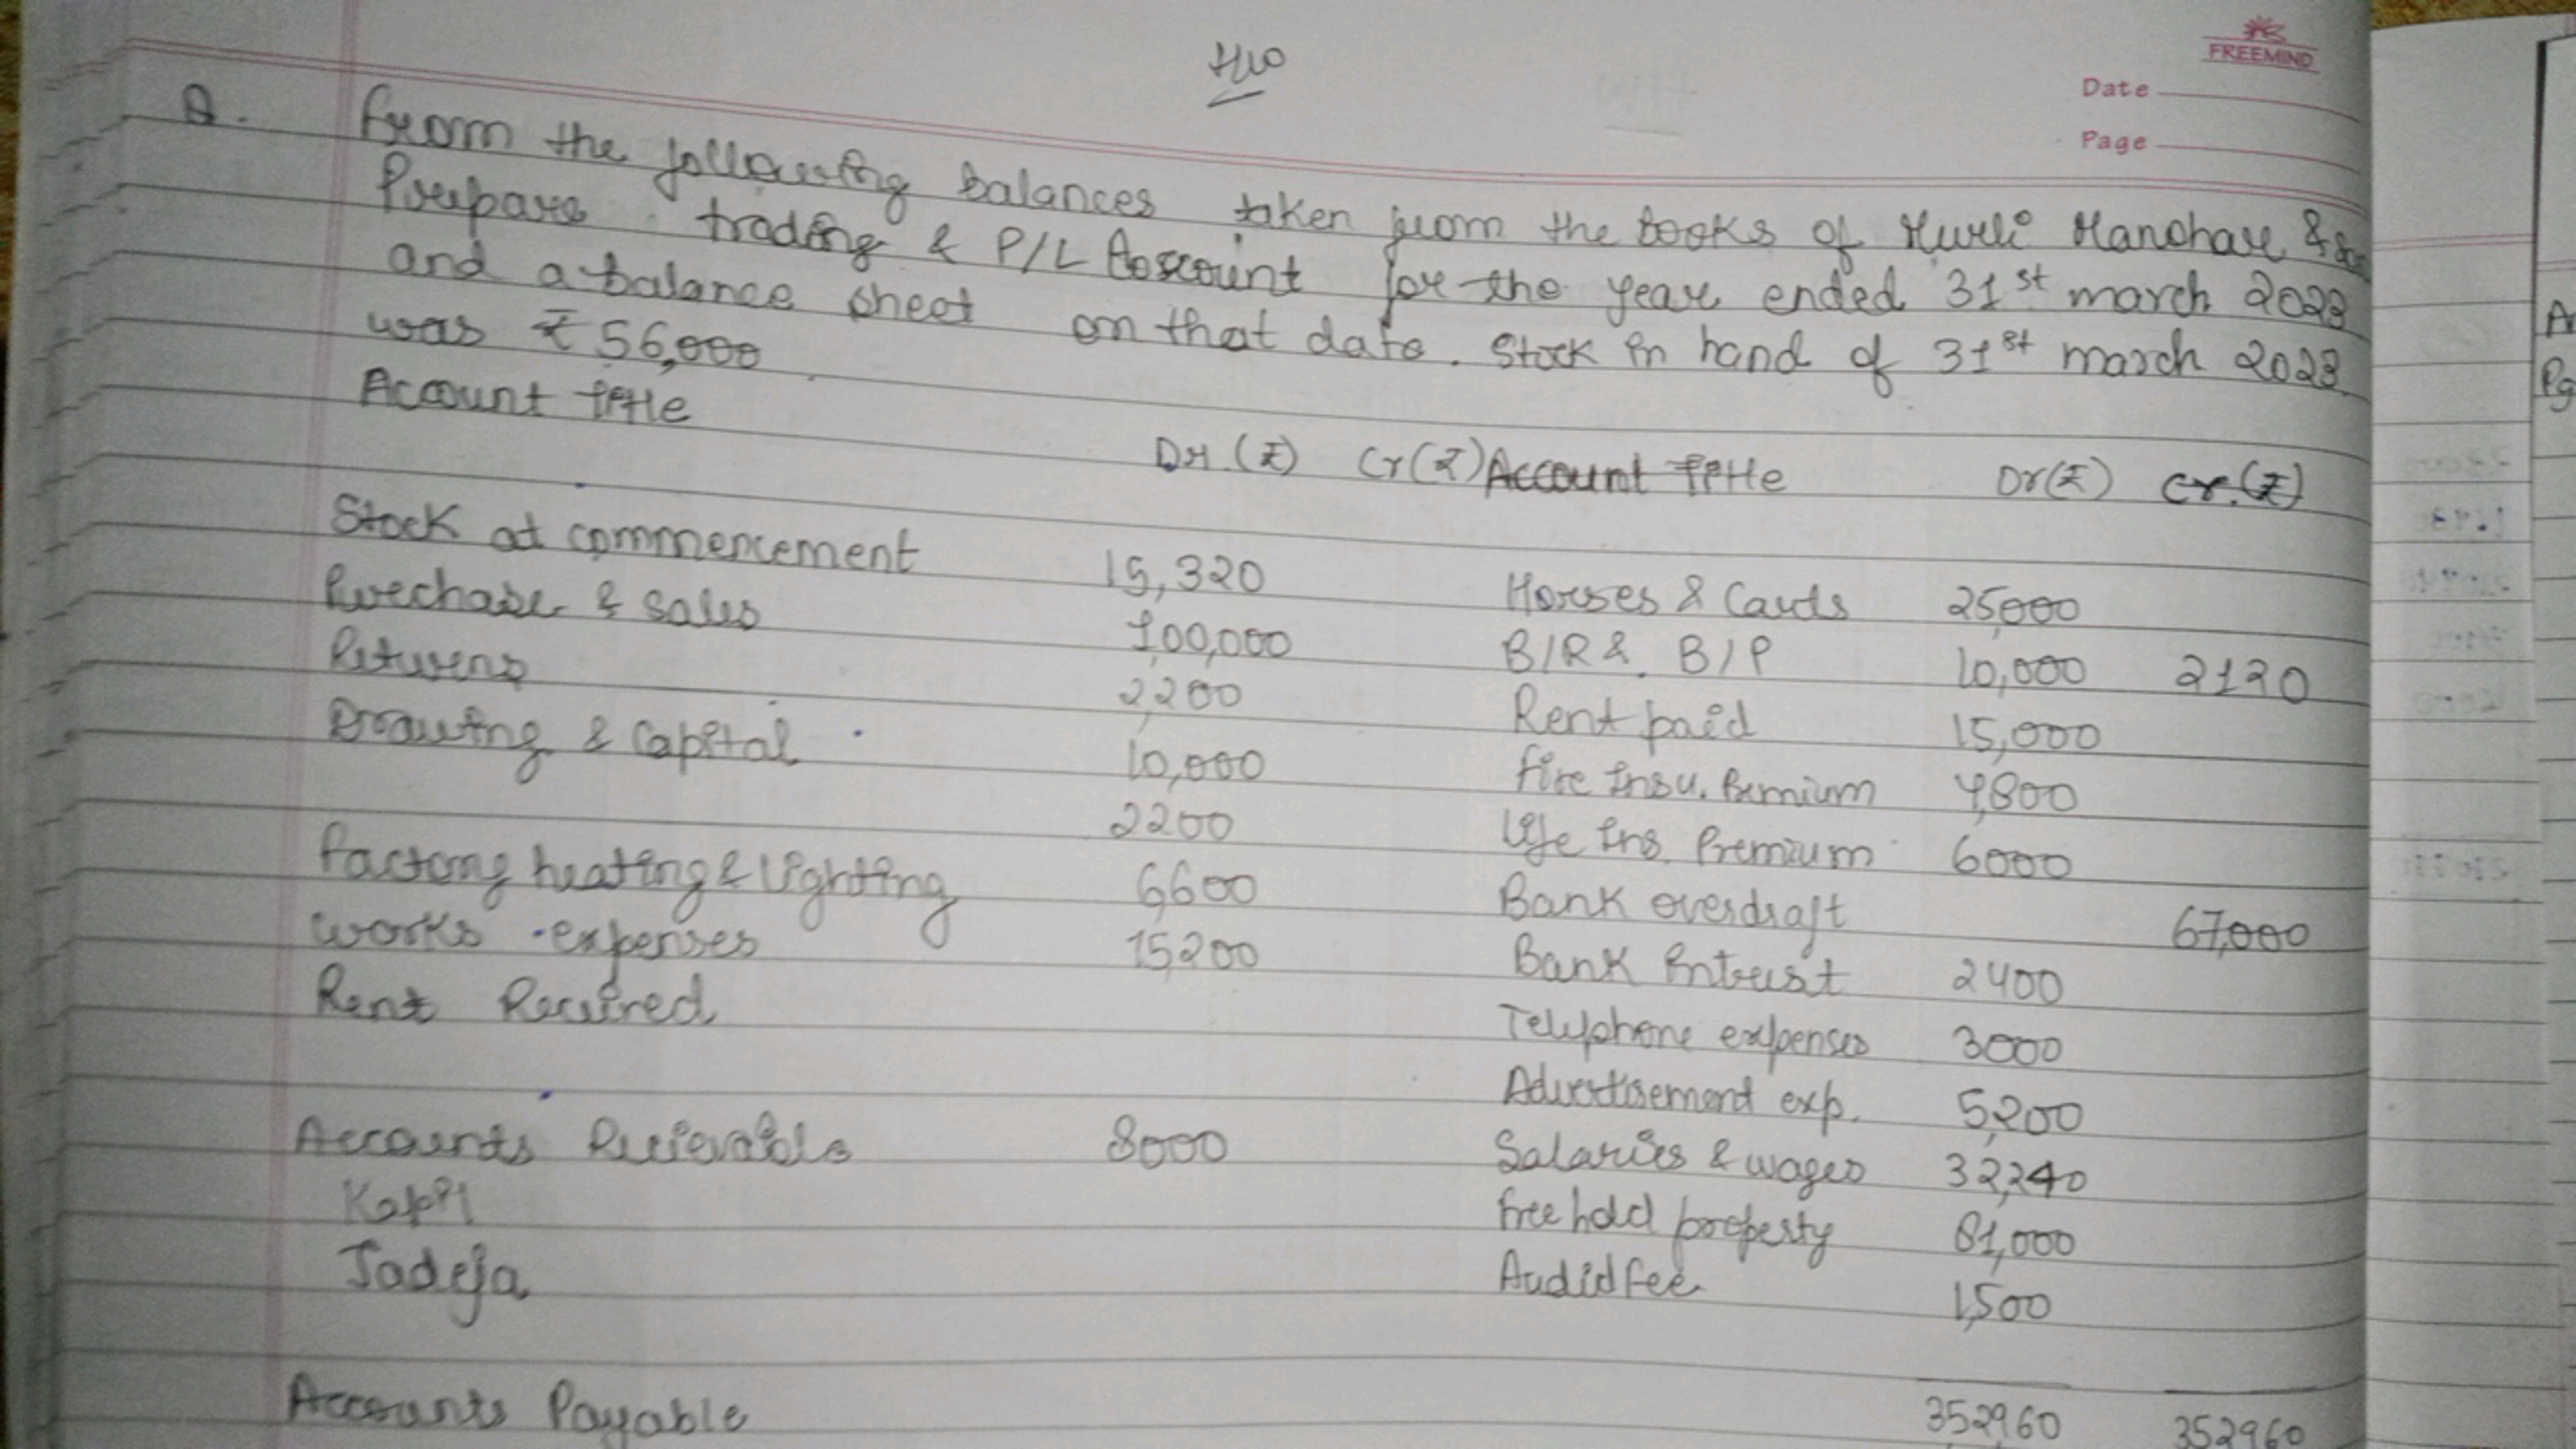 H/W
FREEMIND
Date
Page
Q. From the following balances taken from the books of Murli Manohar &
Prepare trading & P/L Account for the year ended 31st march 2023
and a balance sheet on that date. Stock in hand of 31st march 2023
was ₹ 56,000
Account title Dr.(₹) Cr(₹) Account title Dr(₹) Cr.(₹)
Stock at commencement 15,320 Horses & Carts 25,000
Purchase & sales 100,000 B/R & B/P 10,000 2120
Returns 2,200 Rent paid 15,000
Drawing & Capital 10,000 Fire Insu. Premium 4,800
2200 Life Ins. Premium 6000
Factory heating & lighting 6,600 Bank overdraft 67,000
works expenses 15,200 Bank Intrest 2400
Rent Recived Telephone expenses 3000
Advertisement exp. 5,200
Accounts 8000 Salaries & wages 32,240
Kapil Free hold property 81,000
Jadeja Audid fee 1,500
Accounts Payable 352960 352960